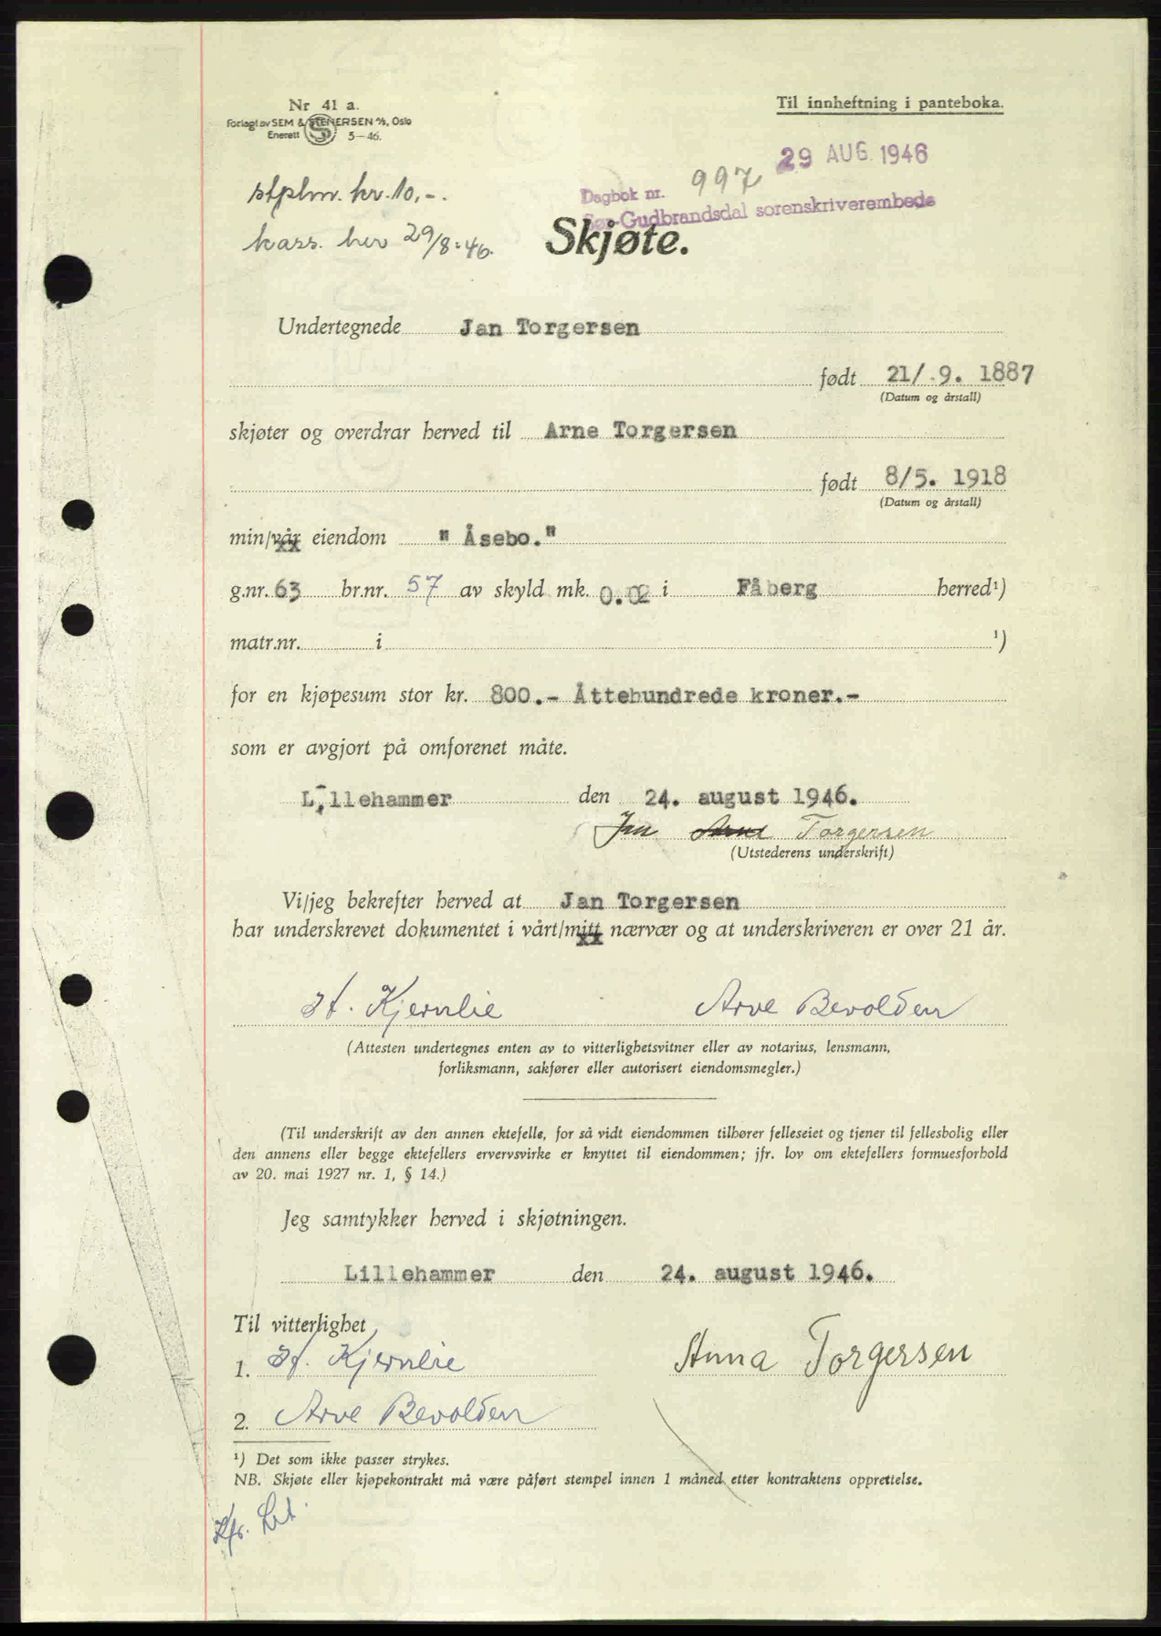 Nr 41 a.
Forlagt av SEM & STENERSEN A/S, Oslo
Enerett 5-46.
Til innheftning i panteboka.
29 AUG 1946
Dagbok nr. 997
Sør-Gudbrandsdal sorenskriverembede
stplm. kr. 10,-.
kass. her 29/8-46.
Skjøte.
Undertegnede Jan Torgersen
født 21/.9. 1887
(Datum og årstall)
skjøter og overdrar herved til Arne Torgersen
født 8/5. 1918
(Datum og årstall)
min/vår eiendom " Åsebo."
g.nr. 63 br.nr. 57 av skyld mk. 0.02 i Fåberg herred¹)
matr.nr. i ¹)
for en kjøpesum stor kr. 800.- Åttehundrede kroner.-
som er avgjort på omforenet måte.
Lillehammer den 24. august 1946.
Jan Torgersen
(Utstederens underskrift)
Vi/jeg bekrefter herved at Jan Torgersen
har underskrevet dokumentet i vårt/mitt nærvær og at underskriveren er over 21 år.
Kjernlie Arve Bevolden
(Attesten undertegnes enten av to vitterlighetsvitner eller av notarius, lensmann,
forliksmann, sakfører eller autorisert eiendomsmegler.)
(Til underskrift av den annen ektefelle, for så vidt eiendommen tilhører felleseiet og tjener til fellesbolig eller
den annens eller begge ektefellers ervervsvirke er knyttet til eiendommen; jfr. lov om ektefellers formuesforhold
av 20. mai 1927 nr. 1, § 14.)
Jeg samtykker herved i skjøtningen.
Lillehammer den 24. august 1946.
Til vitterlighet
1. Kjernlie
Anna Torgersen
2. Arve Bevolden
¹) Det som ikke passer strykes.
NB. Skjøte eller kjøpekontrakt må være påført stempel innen 1 måned etter kontraktens opprettelse.